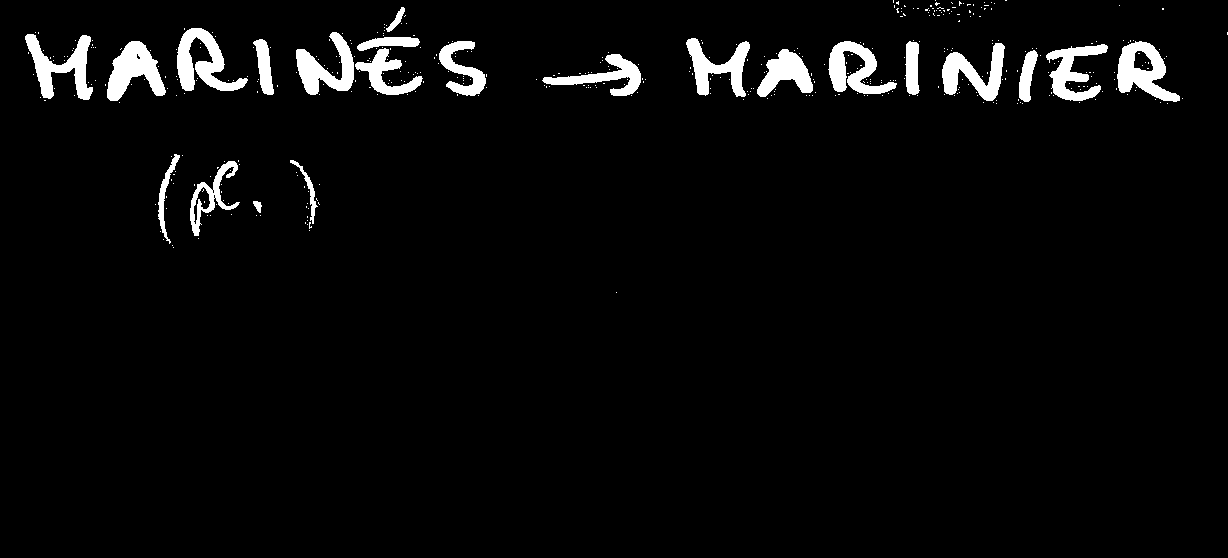 MARINÉS → MARINIER
(pl. )